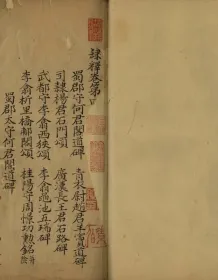 隸釋卷第四
蜀郡守何君閣道碑 青衣尉趙君羊竇道碑
司隸楊君石門頌 廣漢長王君石路碑
武都守李翕西狹頌 李翕黽池五瑞碑
李翕析里橋郙閣頌 桂陽守周憬功勳銘
蜀郡太守何君閣道碑